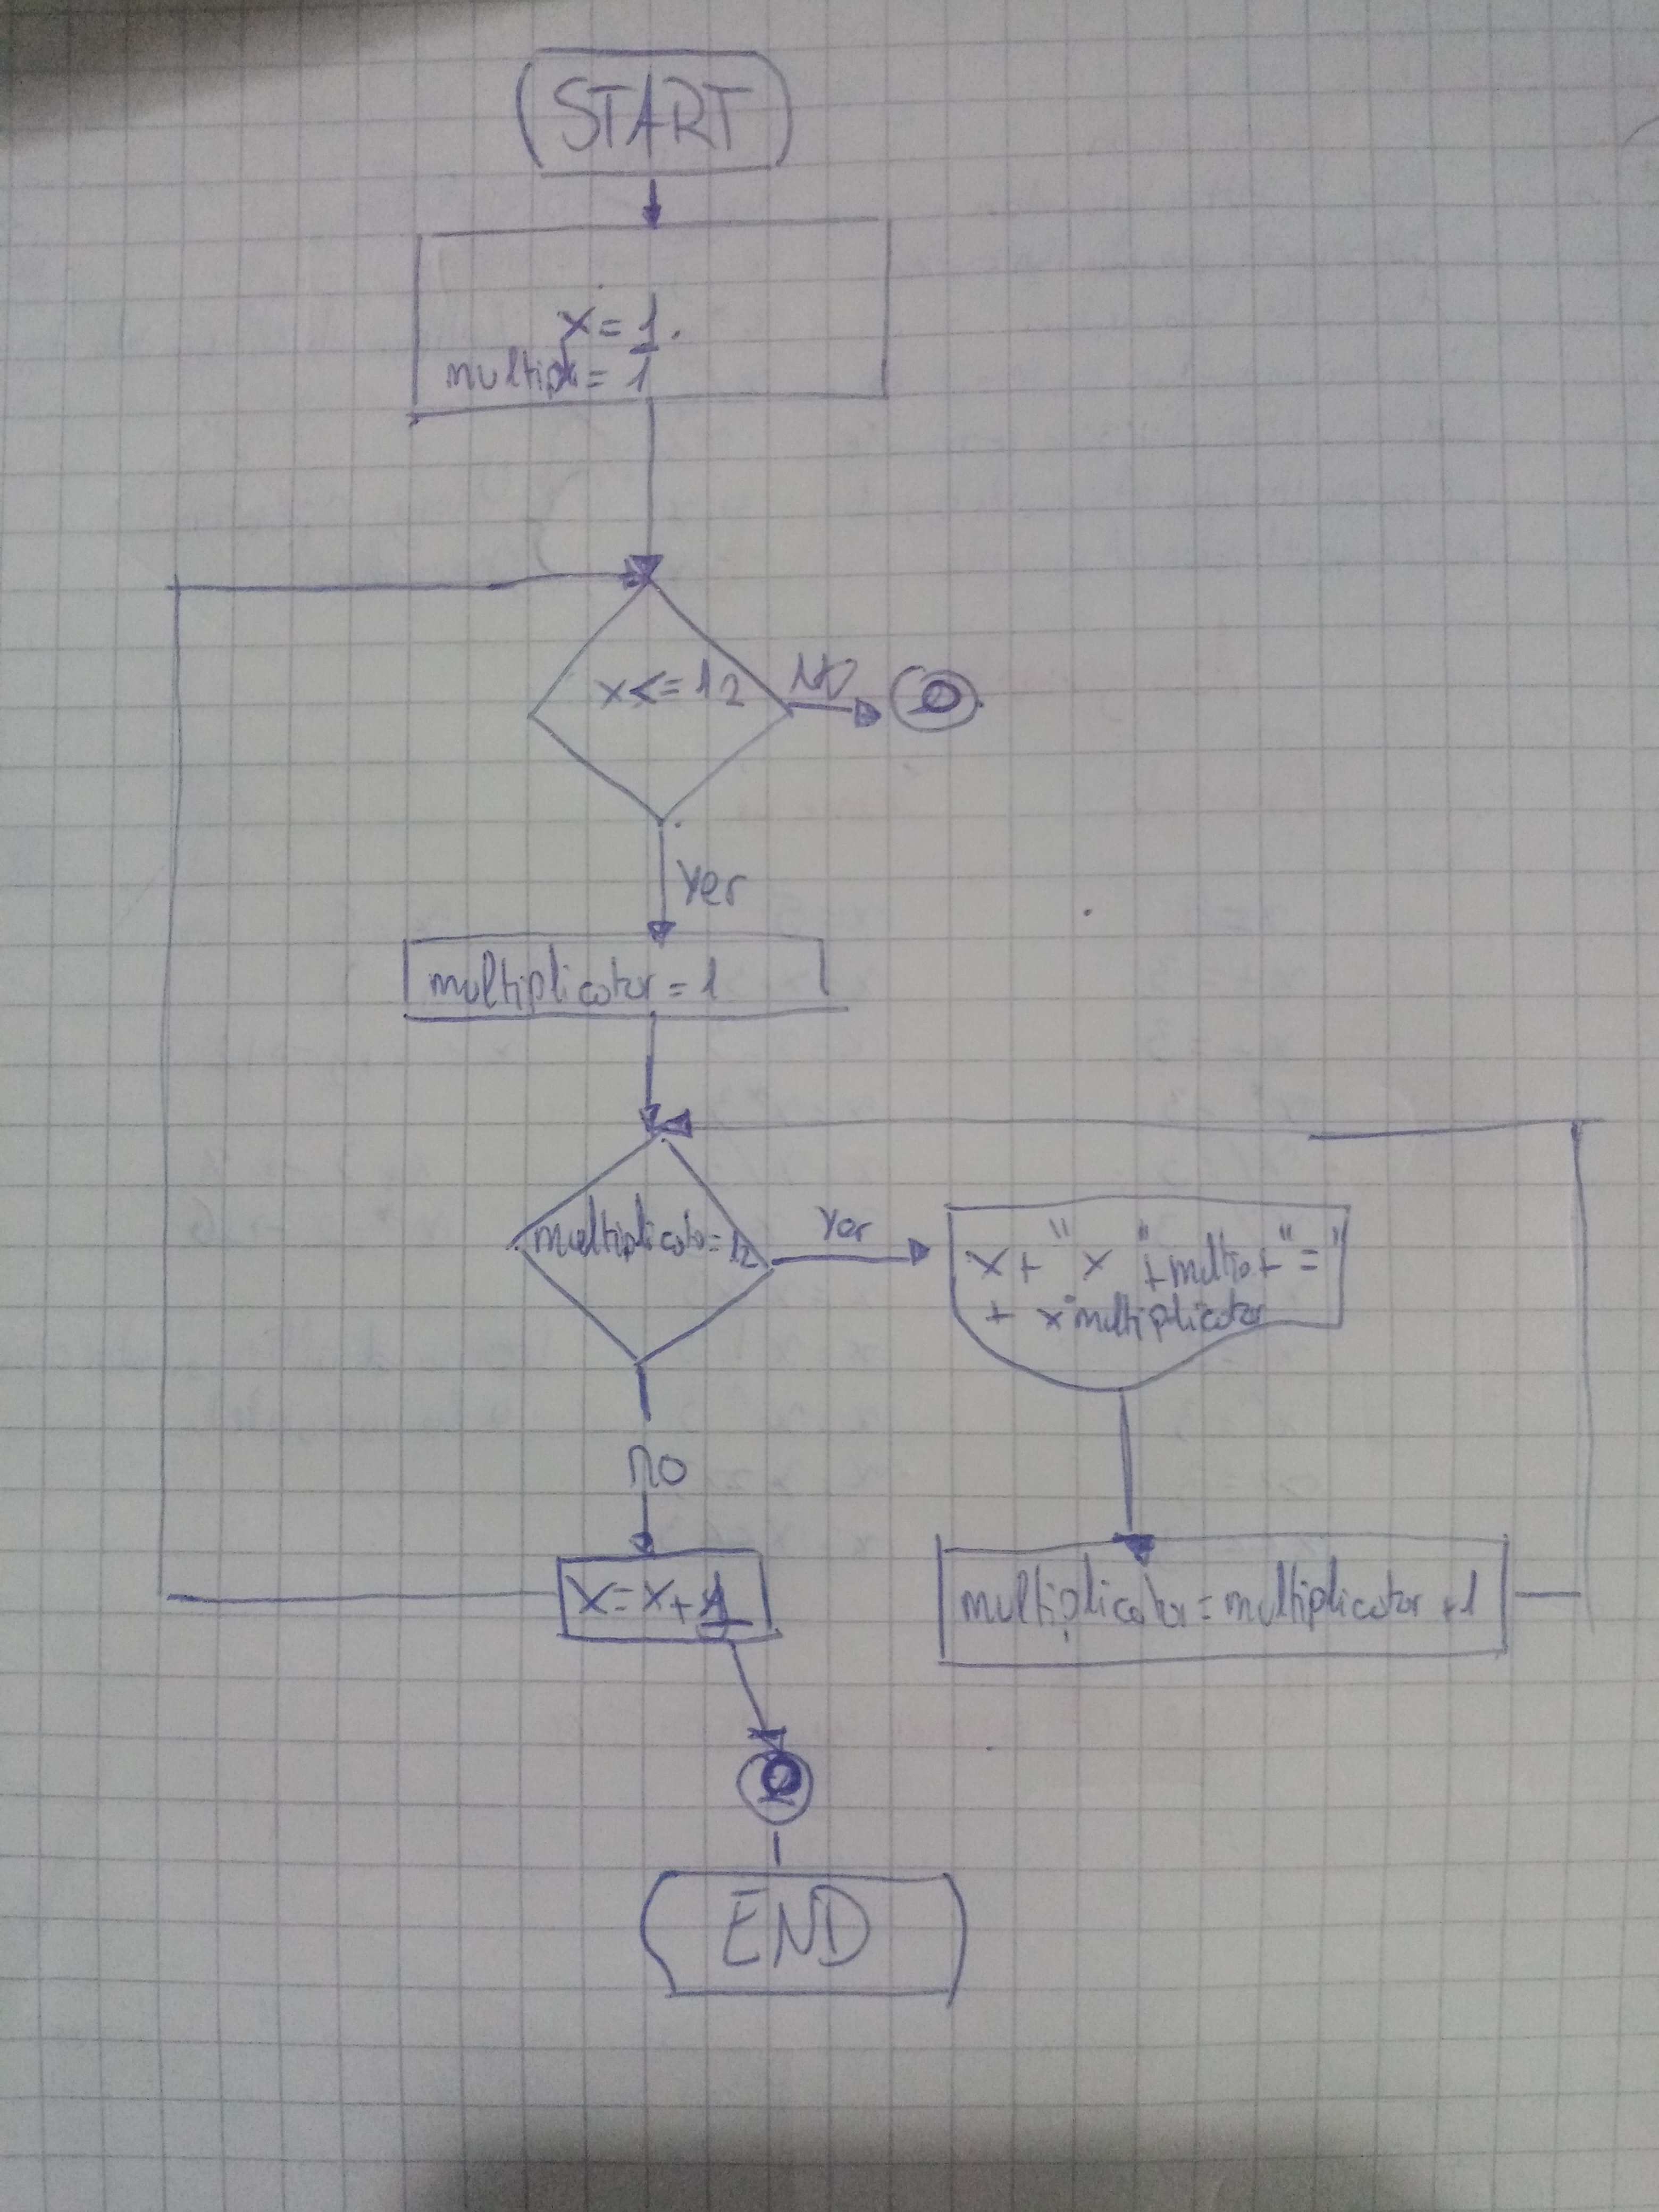 START
x = 1.
multipl = 1
x <= 12
NO
Yes
multiplicator = 1
multiplicato = 12
Yes
x + " x " + multip. + " = "
+ x * multiplicator
no
x = x + 1
multiplicator = multiplicator + 1
END